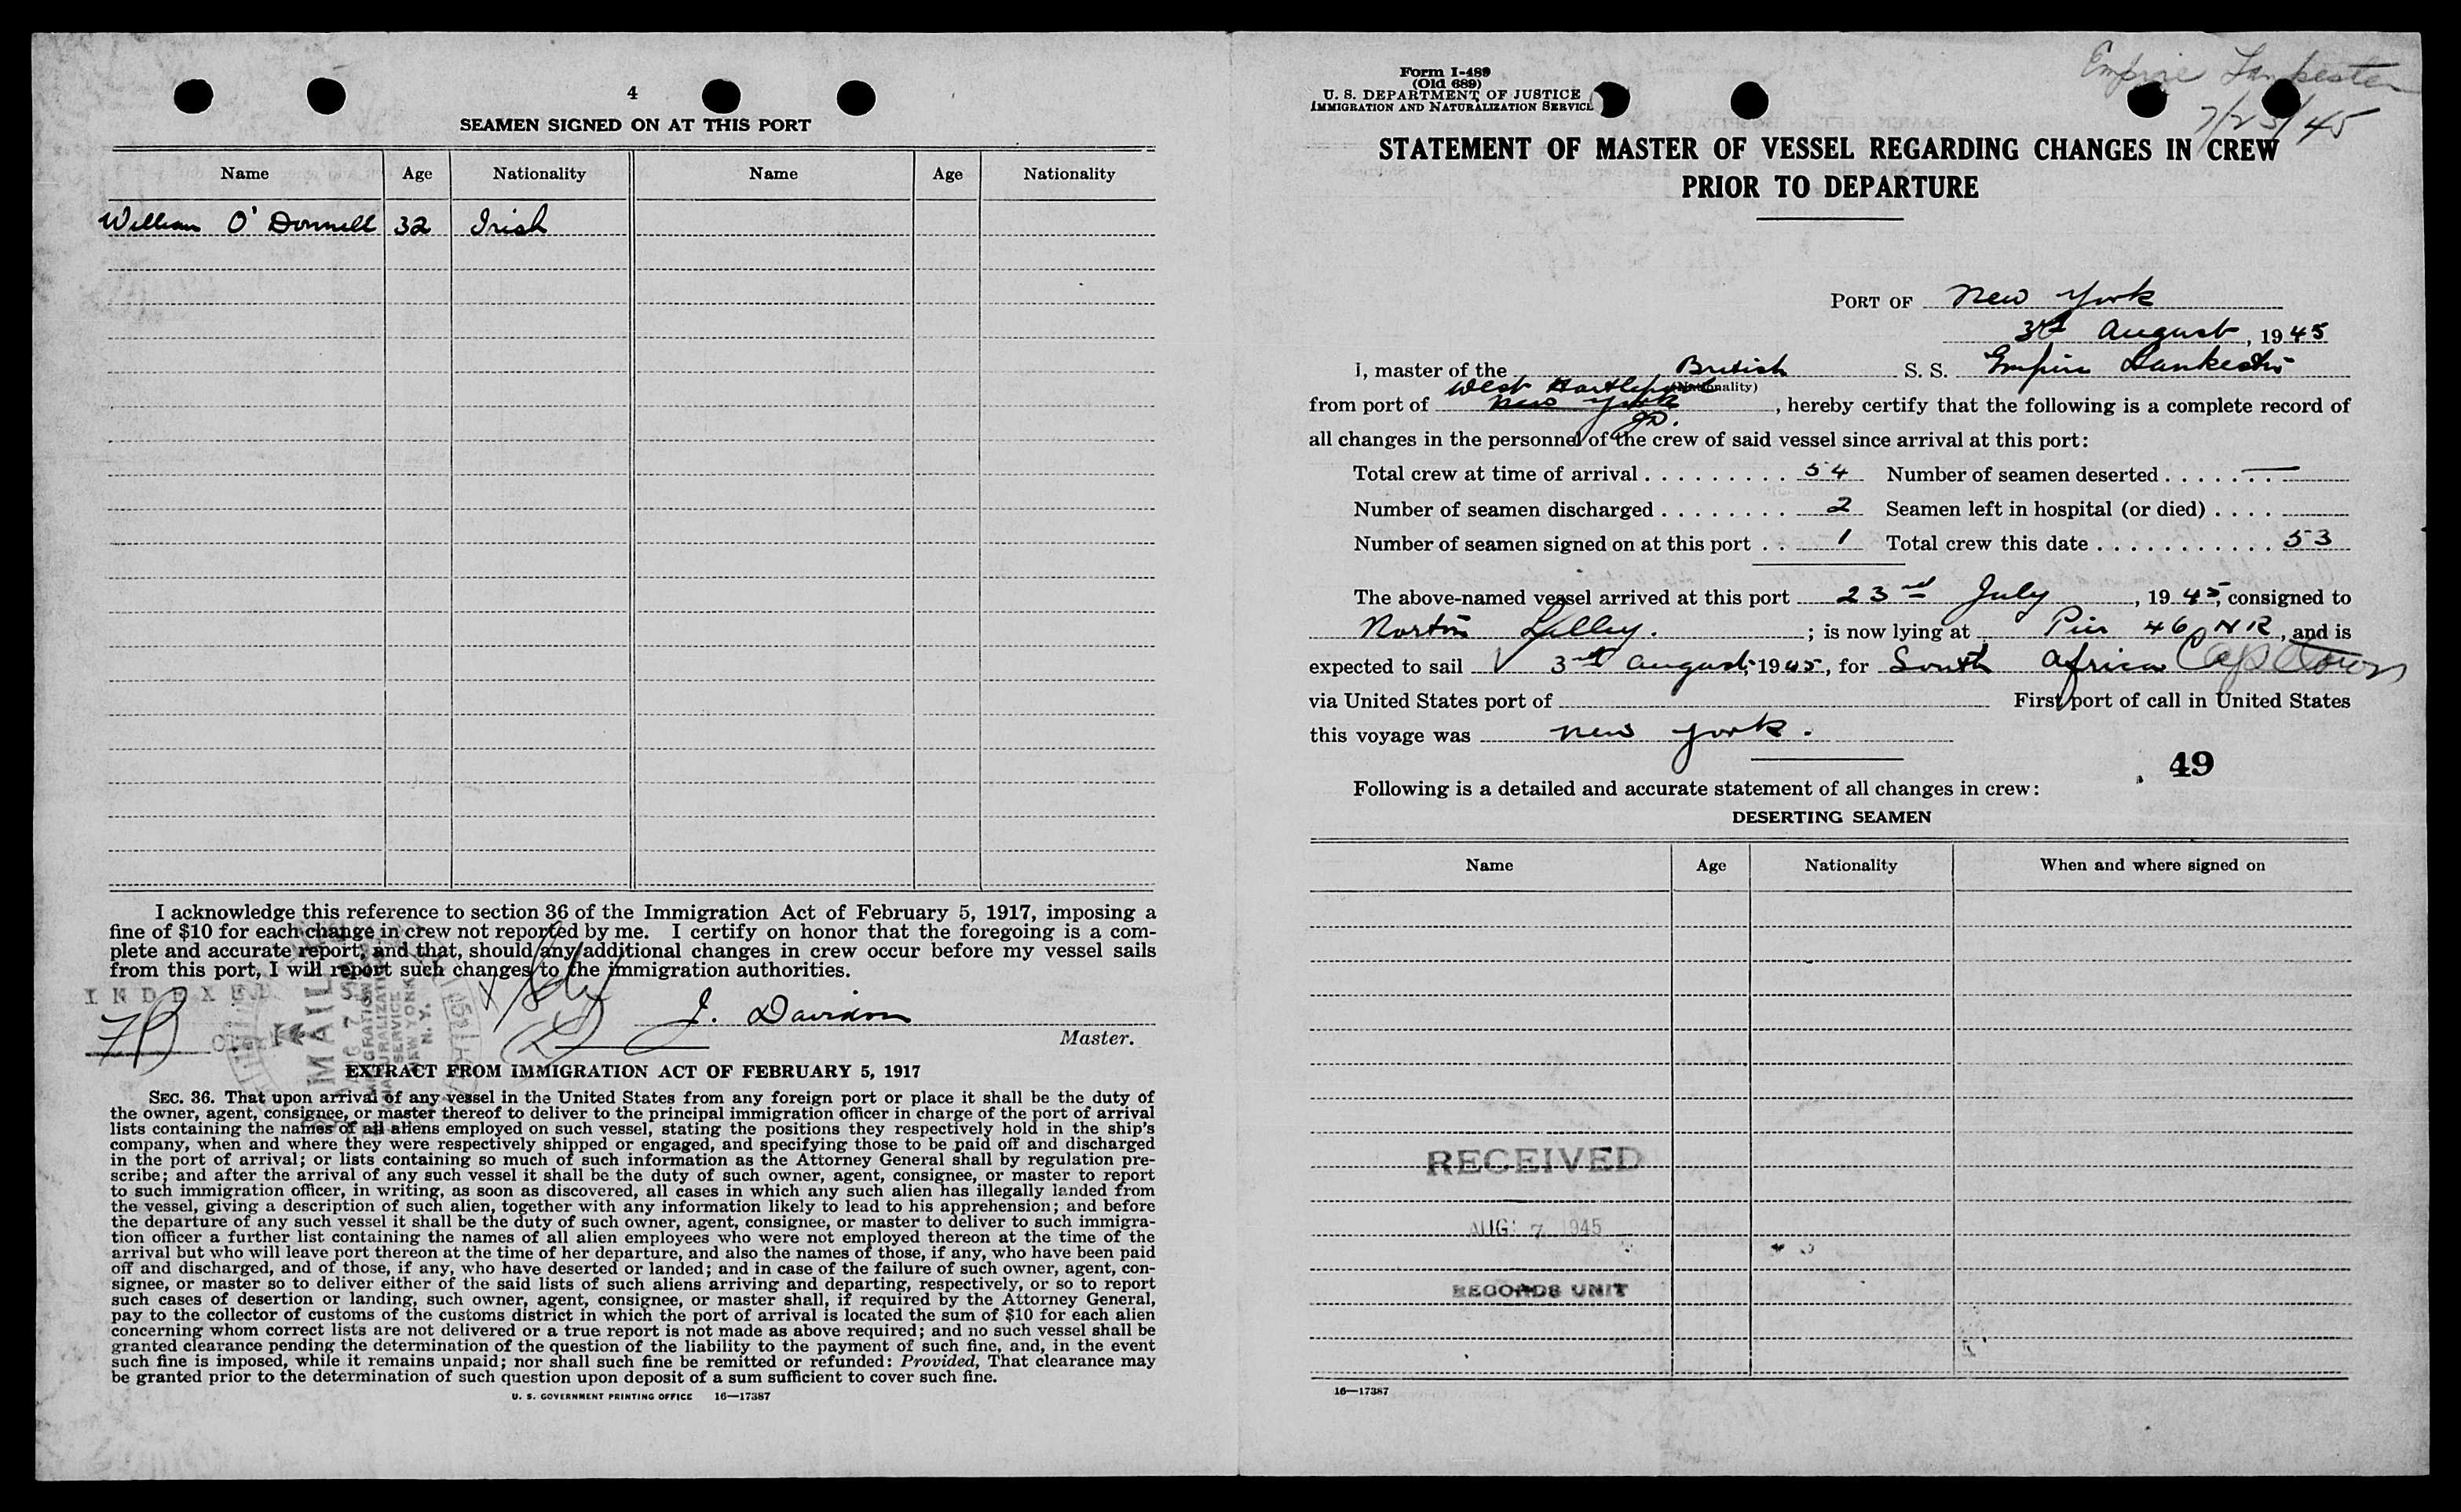 4
SEAMEN SIGNED ON AT THIS PORT
Name Age Nationality Name Age Nationality
William O'Donnell 32 Irish
I acknowledge this reference to section 36 of the Immigration Act of February 5, 1917, imposing a
fine of $10 for each change in crew not reported by me. I certify on honor that the foregoing is a com-
plete and accurate report, and that, should any additional changes in crew occur before my vessel sails
from this port, I will report such changes to the immigration authorities.
INDEXED
MAIL
AUG 7
IMMIGRATION
NATURALIZATION
SERVICE
NEW YORK
N. Y.
J. Davidson
Master.
EXTRACT FROM IMMIGRATION ACT OF FEBRUARY 5, 1917
SEC. 36. That upon arrival of any vessel in the United States from any foreign port or place it shall be the duty of
the owner, agent, consignee, or master thereof to deliver to the principal immigration officer in charge of the port of arrival
lists containing the names of all aliens employed on such vessel, stating the positions they respectively hold in the ship's
company, when and where they were respectively shipped or engaged, and specifying those to be paid off and discharged
in the port of arrival; or lists containing so much of such information as the Attorney General shall by regulation pre-
scribe; and after the arrival of any such vessel it shall be the duty of such owner, agent, consignee, or master to report
to such immigration officer, in writing, as soon as discovered, all cases in which any such alien has illegally landed from
the vessel, giving a description of such alien, together with any information likely to lead to his apprehension; and before
the departure of any such vessel it shall be the duty of such owner, agent, consignee, or master to deliver to such immigra-
tion officer a further list containing the names of all alien employees who were not employed thereon at the time of the
arrival but who will leave port thereon at the time of her departure, and also the names of those, if any, who have been paid
off and discharged, and of those, if any, who have deserted or landed; and in case of the failure of such owner, agent, con-
signee, or master so to deliver either of the said lists of such aliens arriving and departing, respectively, or so to report
such cases of desertion or landing, such owner, agent, consignee, or master shall, if required by the Attorney General,
pay to the collector of customs of the customs district in which the port of arrival is located the sum of $10 for each alien
concerning whom correct lists are not delivered or a true report is not made as above required; and no such vessel shall be
granted clearance pending the determination of the question of the liability to the payment of such fine, and, in the event
such fine is imposed, while it remains unpaid; nor shall such fine be remitted or refunded: Provided, That clearance may
be granted prior to the determination of such question upon deposit of a sum sufficient to cover such fine.
U. S. GOVERNMENT PRINTING OFFICE 16—17387
Form I-489
(Old 689)
U. S. DEPARTMENT OF JUSTICE
IMMIGRATION AND NATURALIZATION SERVICE
Empire Lankester
7/23/45
STATEMENT OF MASTER OF VESSEL REGARDING CHANGES IN CREW
PRIOR TO DEPARTURE
PORT OF New York
3rd August, 1945
I, master of the British S. S. Empire Lankester
(Nationality)
West Hartlepool
from port of New York, hereby certify that the following is a complete record of
JD.
all changes in the personnel of the crew of said vessel since arrival at this port:
Total crew at time of arrival . . . . . . . . . 54 Number of seamen deserted . . . . . . . —
Number of seamen discharged . . . . . . . . 2 Seamen left in hospital (or died) . . . .
Number of seamen signed on at this port . . 1 Total crew this date . . . . . . . . . . . 53
The above-named vessel arrived at this port 23rd July, 1945, consigned to
Norton Lilley. ; is now lying at Pier 46 NR, and is
expected to sail 3rd August, 1945, for South Africa Capetown
via United States port of First port of call in United States
this voyage was New York.
49
Following is a detailed and accurate statement of all changes in crew:
DESERTING SEAMEN
Name Age Nationality When and where signed on
RECEIVED
AUG 7 1945
RECORDS UNIT
16—17387